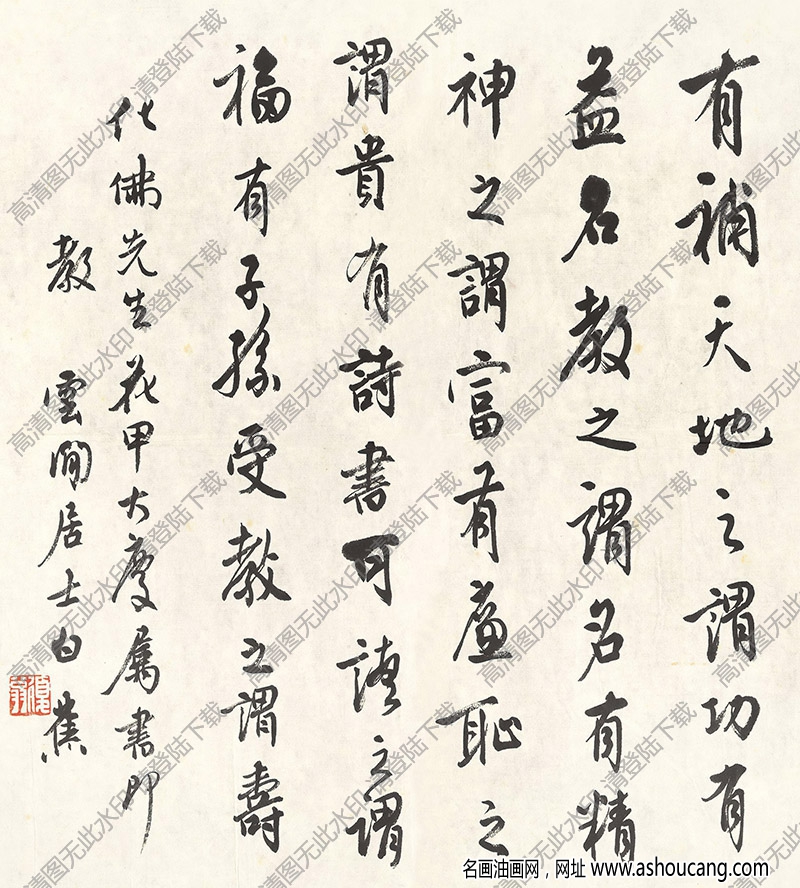 有補天地之謂功有
益名教之謂名有精
神之謂富有廉恥之
謂貴有詩書可讀之謂
福有子孫受教之謂壽
化佛先生花甲大慶屬書即
教 雲間居士白蕉
高清图无此水印 请登陆下载
名画油画网，网址 www.ashoucang.com